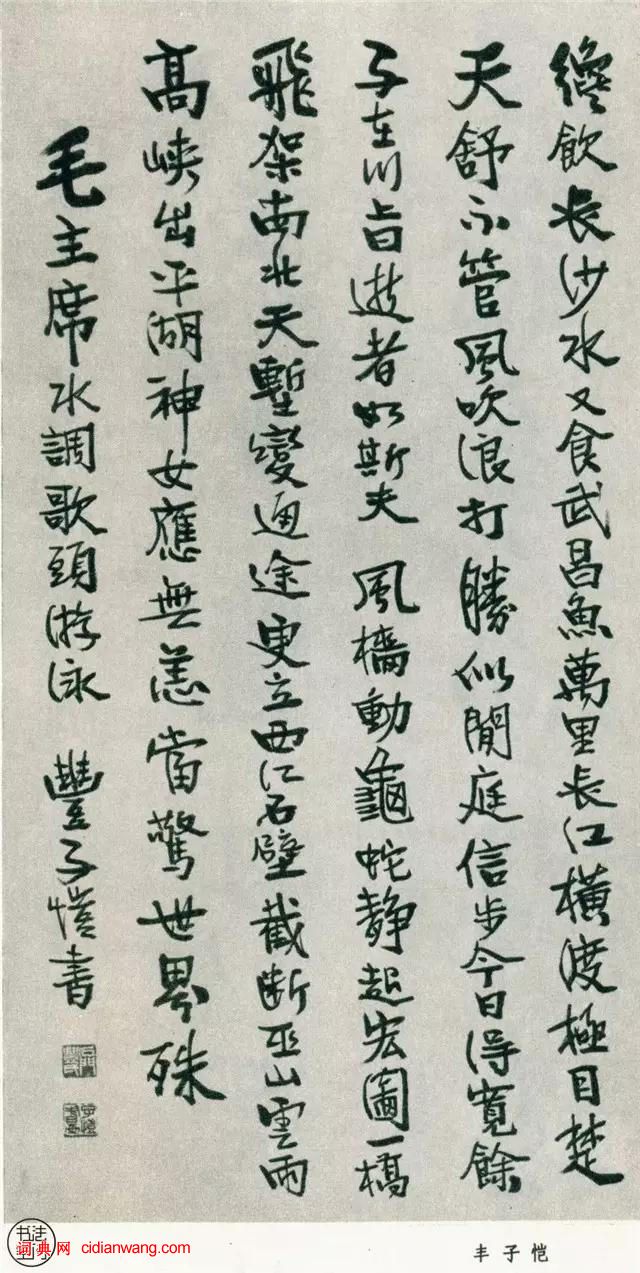 纔飲長沙水又食武昌魚萬里長江橫渡極目楚
天舒不管風吹浪打勝似閒庭信步今日得寬餘
子在川上曰逝者如斯夫 風檣動龜蛇静起宏圖一橋
飛架南北天塹變通途更立西江石壁截斷巫山雲雨
高峽出平湖神女應無恙當驚世界殊
毛主席水調歌頭游泳 豐子愷書
丰子恺
书法
词典网 cidianwang.com